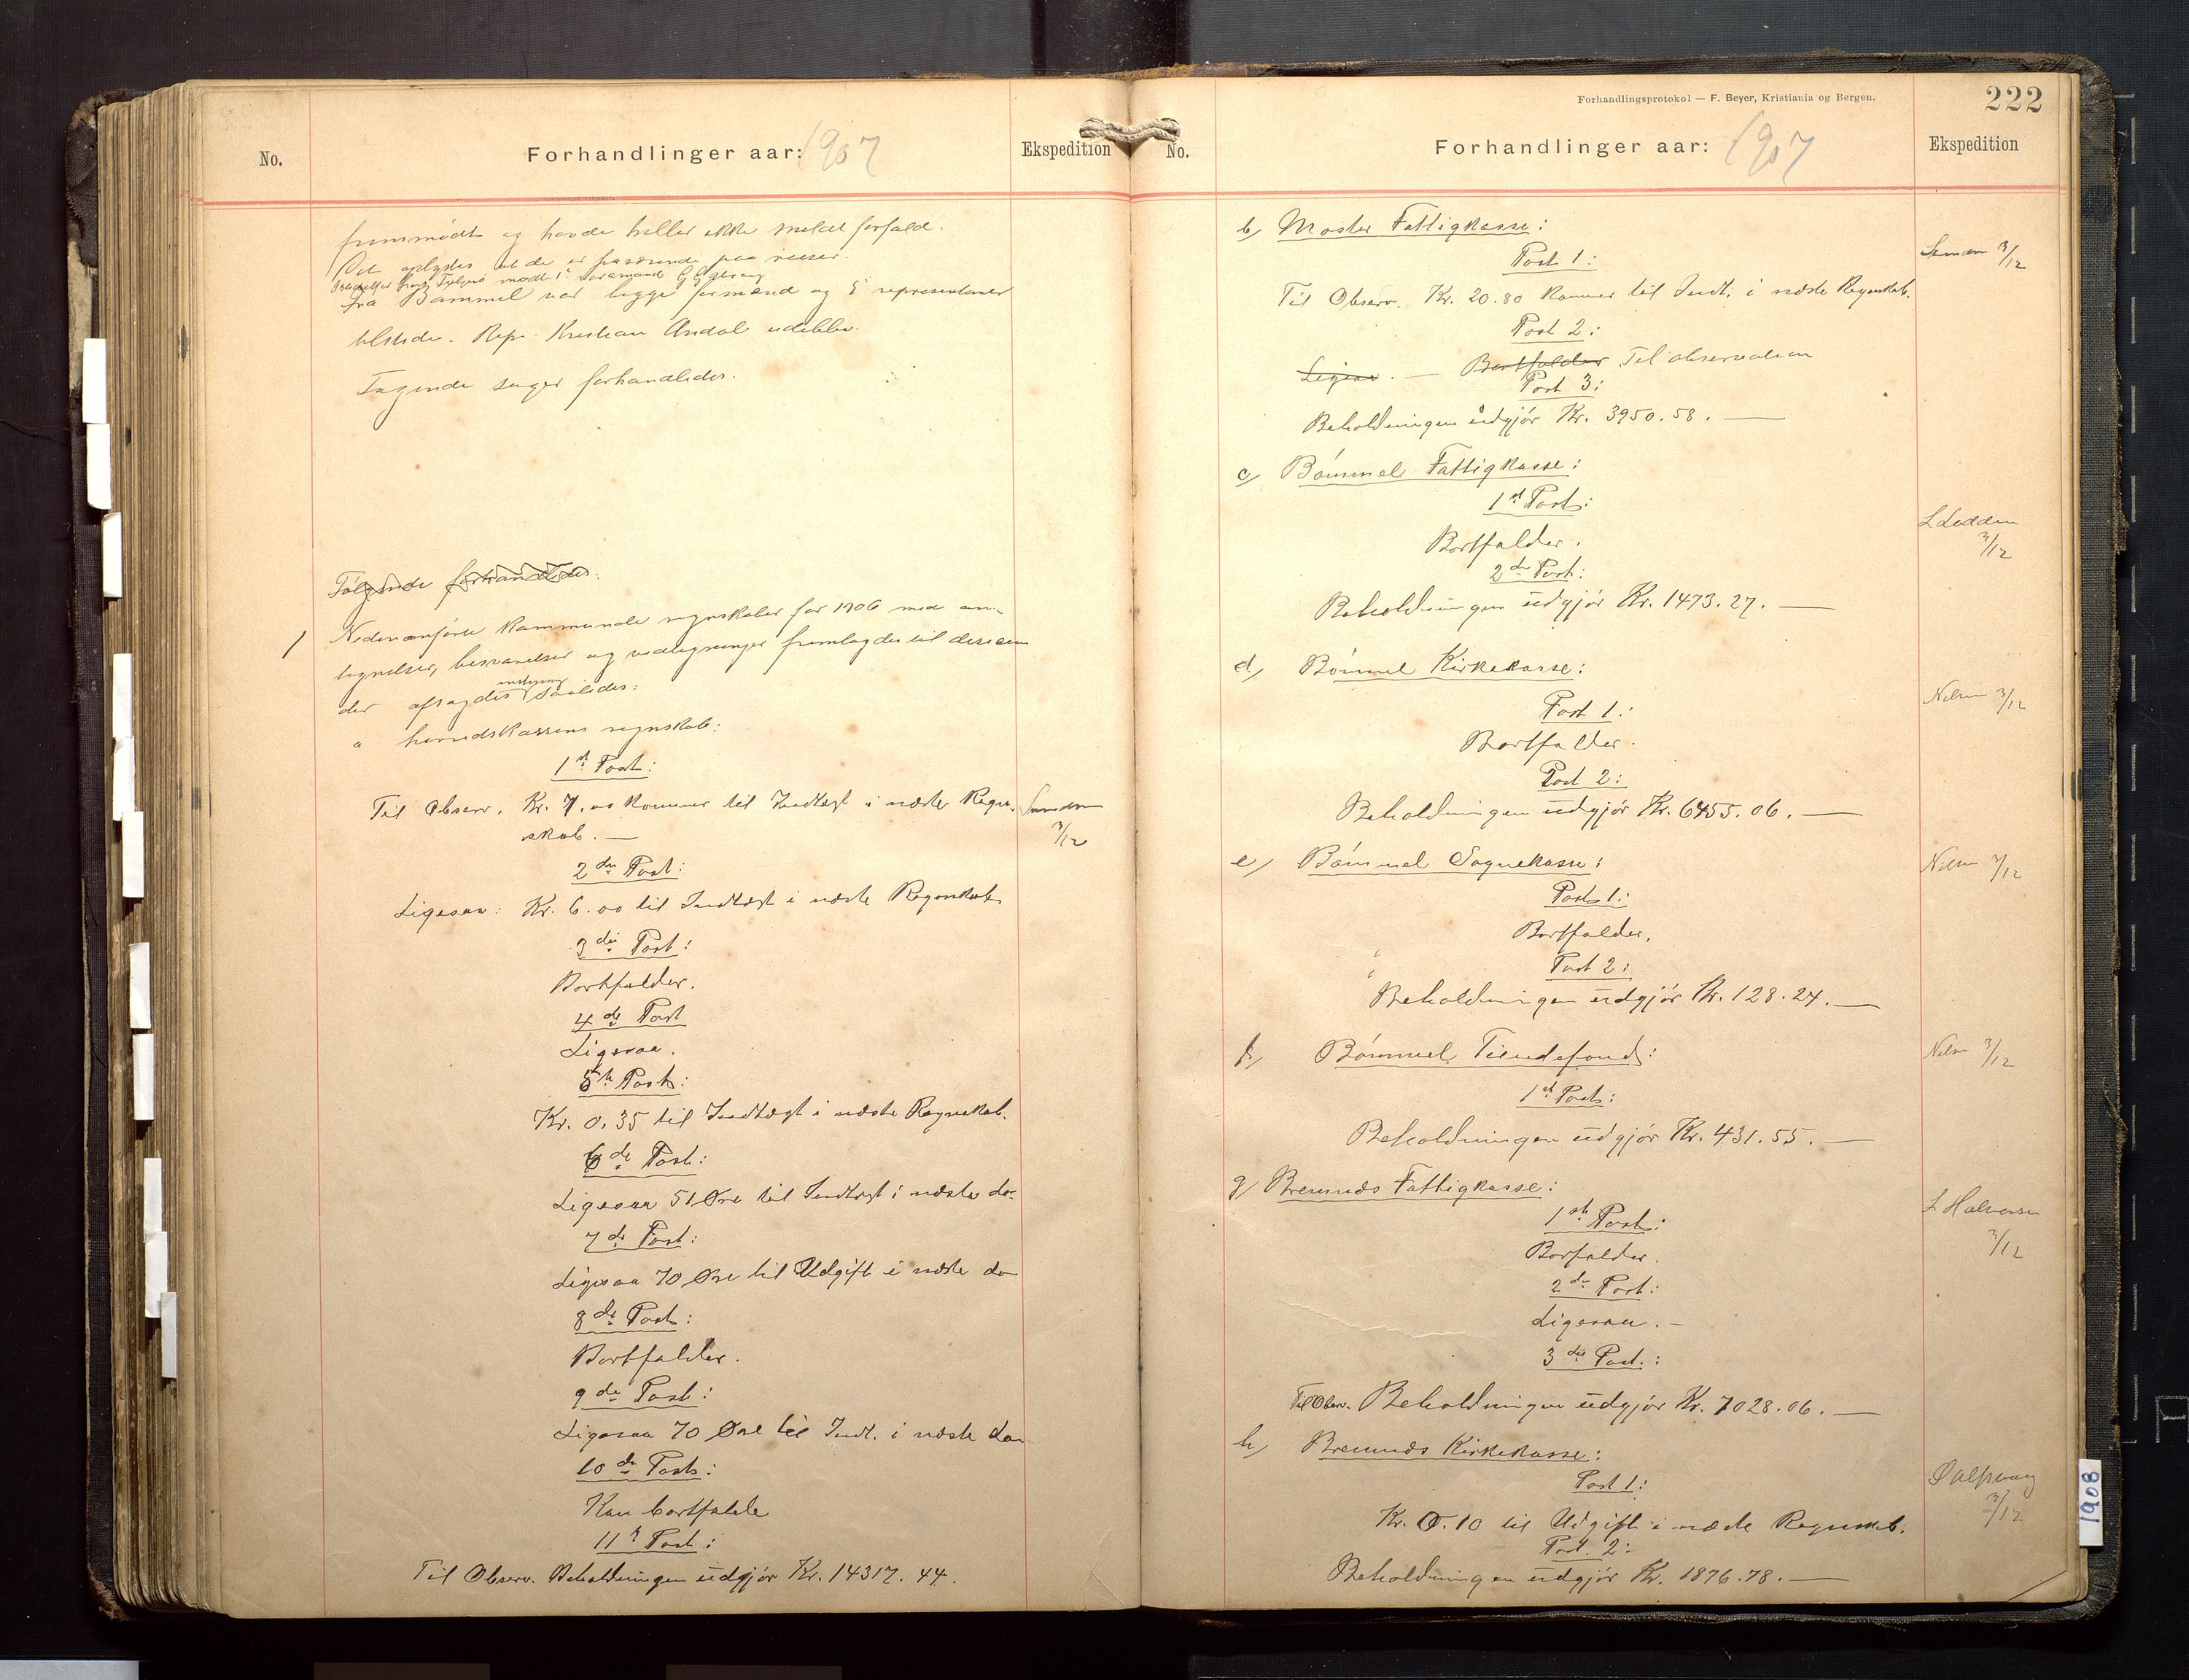 No.
Forhandlinger aar: 1907
Ekspedition
fremmødt og havde heller ikke meldt forfald.
Det oplystes at de er fraværende paa reiser.
mødte 1ste varamand
Fra Bømmel var begge formænd og 5 repræsentanter
tilstede. Rep. Kristian Andal udeblev.
Følgende sager forhandledes.
Følgende forhandledes:
1 Nedenanførte kommunale regnskaber for 1906 med an-
tegnelser, besvarelser og vedtegninger fremlagdes til decision
der afsagdes saaledes:
a herredskassens regnskab:
1ste Post:
Til Observ. Kr. 7.00 kommer til Indtægt i næste Regn-
skab. —
3/12
2den Post:
Ligesaa: Kr. 6.00 til Indtægt i næste Regnskab
3die Post:
Bortfalder.
4de Post
Ligesaa.
5te Post:
Kr. 0.35 til Indtægt i næste Regnskab.
6de Post:
Ligesaa 51 Øre til Indtægt i næste do.
7de Post:
Ligesaa 70 Øre til Udgift i næste do
8de Post:
Bortfalder.
9de Post:
Ligesaa 70 Øre til Indt. i næste do
10de Post:
Kan bortfalde
11te Post:
Til Observ. Beholdningen udgjør Kr. 14317.44.
Forhandlingsprotokol — F. Beyer, Kristiania og Bergen.
222
No.
Forhandlinger aar: 1907
Ekspedition
b, Moster Fattigkasse:
3/12
Post 1:
Til Observ. Kr. 20.80 kommer til Indt. i næste Regnskab.
Post 2:
Ligesaa. — Bortfalder Til observation
Post 3:
Beholdningen udgjør Kr. 3950.58. —
c, Bømmel Fattigkasse:
1ste Post:
L Lodden
3/12
Bortfalder.
2den Post:
Beholdningen udgjør Kr. 1473.27. —
d, Bømmel Kirkekasse:
Nilsen 3/12
Post 1:
Bortfalder.
Post 2:
Beholdningen udgjør Kr. 6455.06. —
e, Bømmel Sognekasse:
Nilsen 3/12
Post 1:
Bortfalder.
Post 2:
Beholdningen udgjør Kr. 128.24. —
f, Bømmel Tiendefond:
Nilsen 3/12
1ste Post:
Beholdningen udgjør Kr. 431.55. —
g, Bremnæs Fattigkasse:
L Halvorsen
3/12
1ste Post:
Borfalder.
2den Post:
Ligesaa. —
3die Post.:
Til Observ. Beholdningen udgjør Kr. 7028.06. —
h, Bremnæs Kirkekasse:
3/12
Post 1:
Kr. 0.10 til Udgift i næste Regnskab.
Post. 2:
Beholdningen udgjør Kr. 1876.78. —
1908